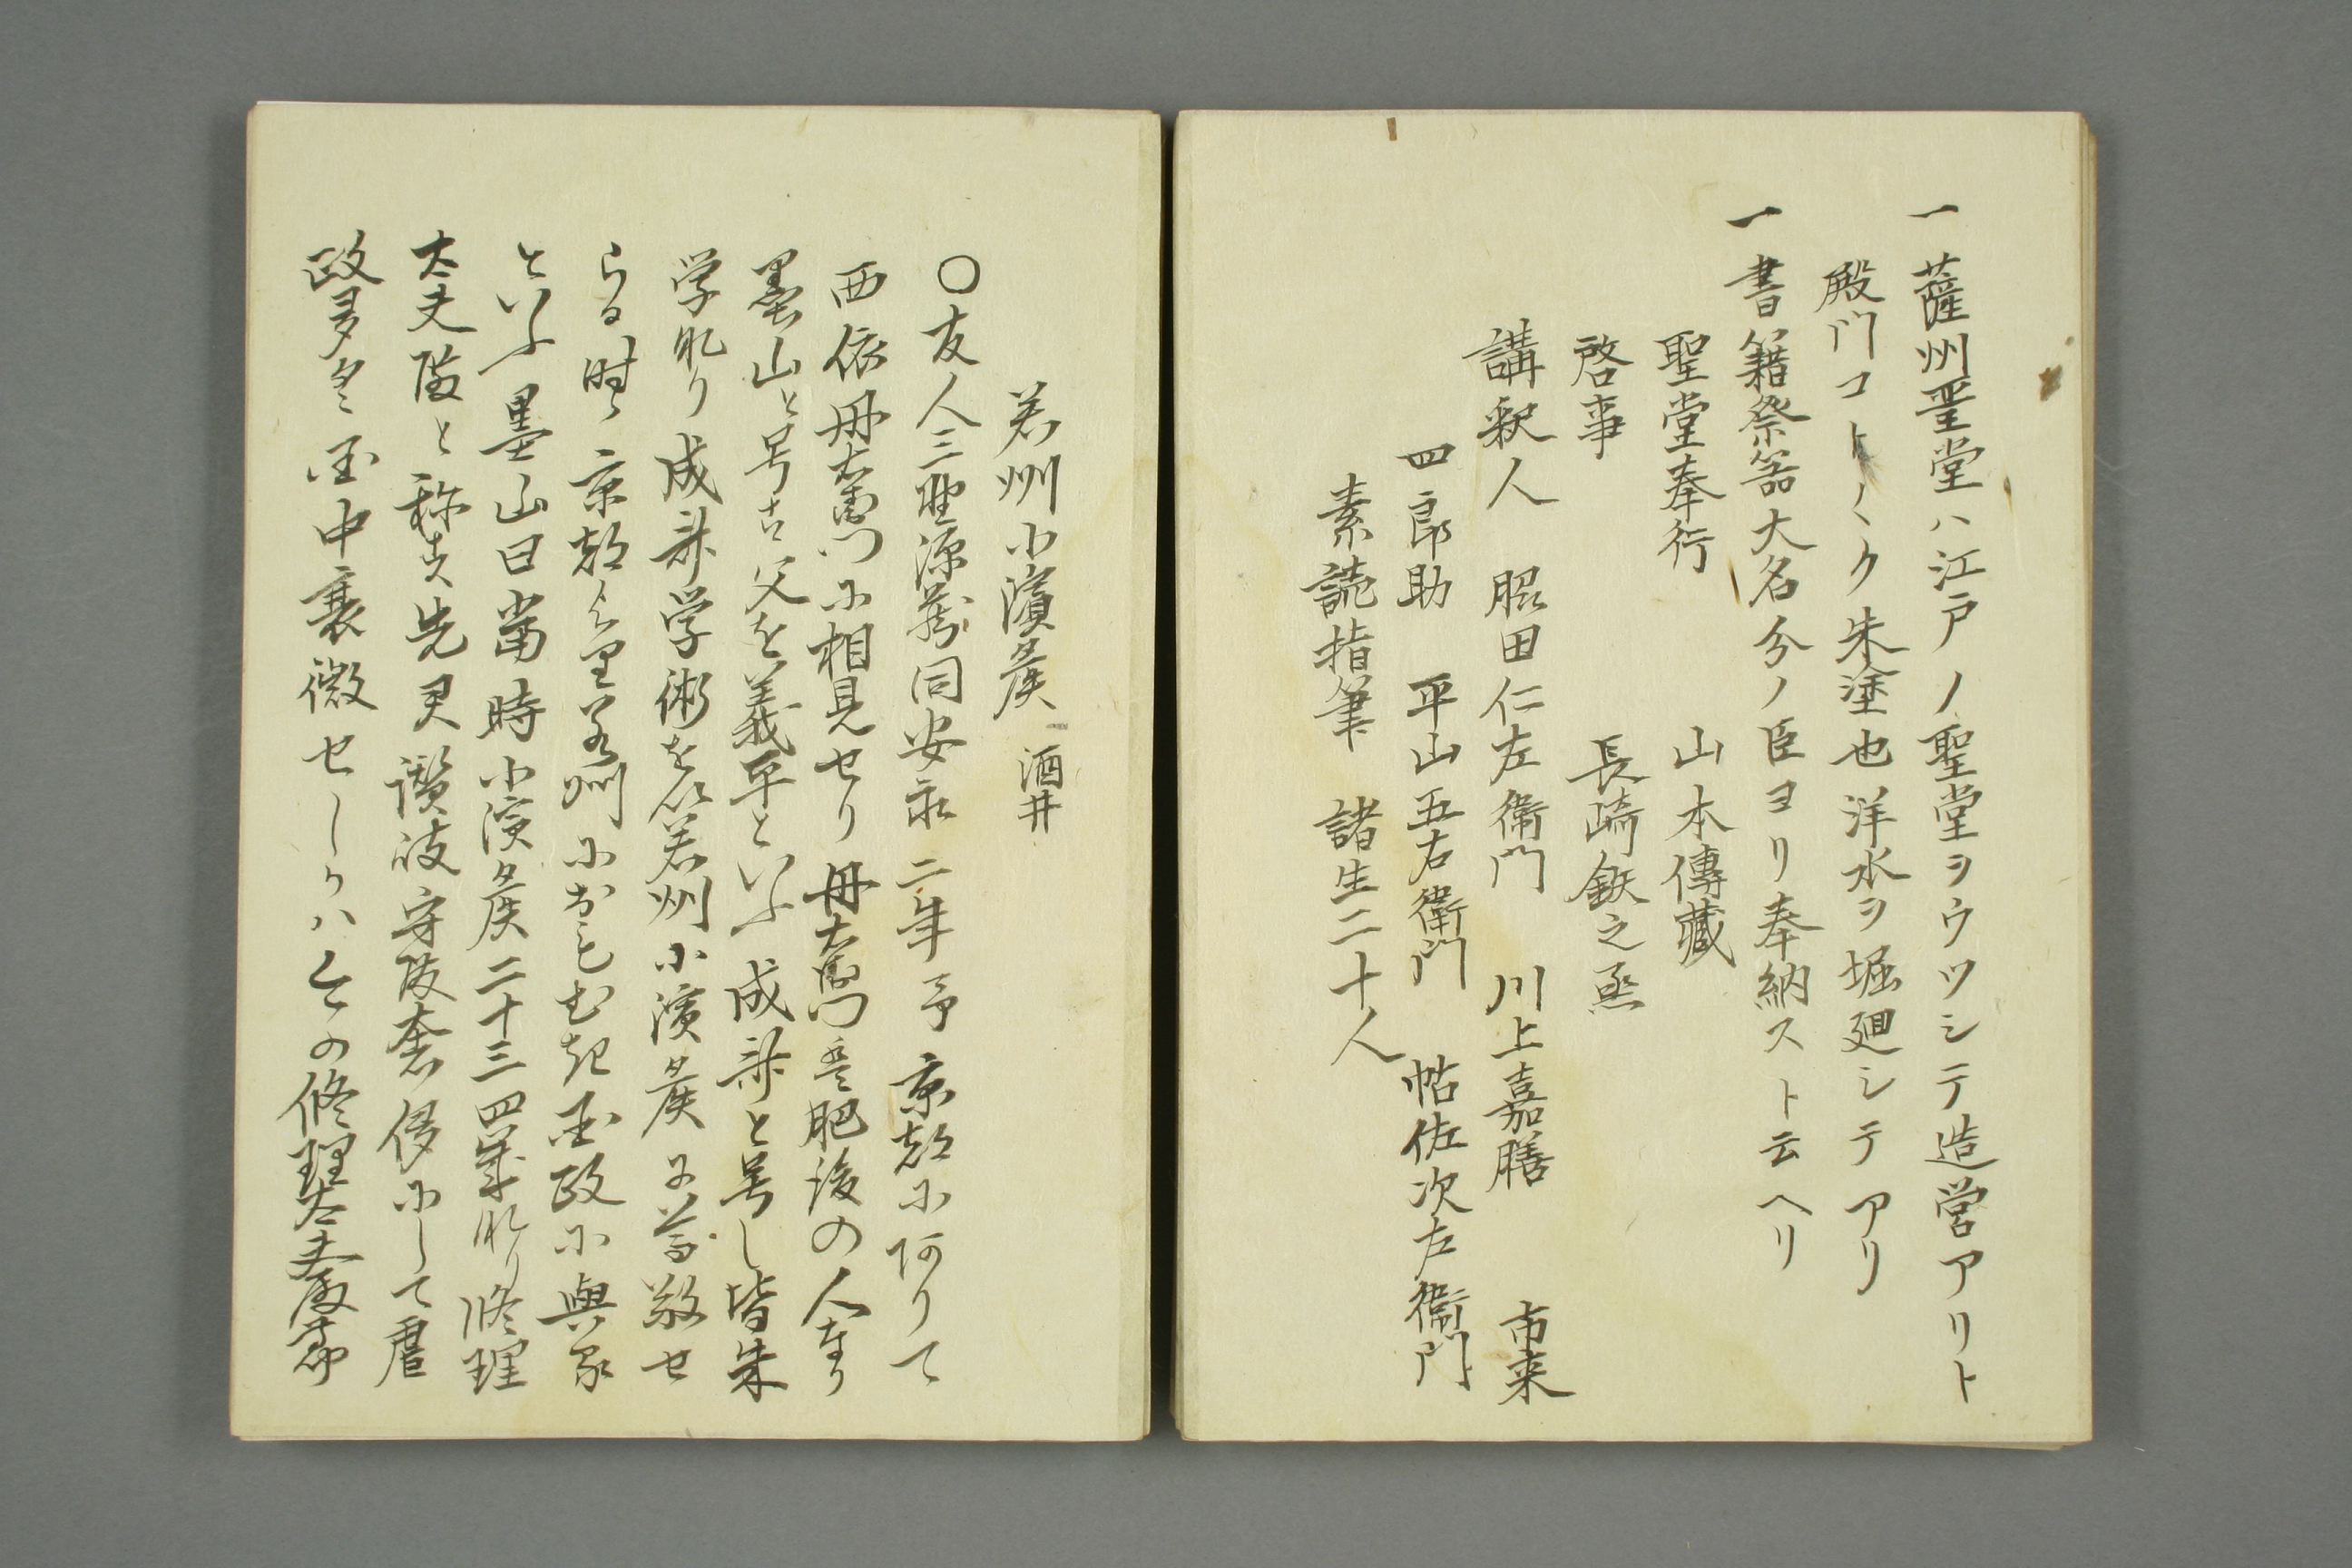 一薩州聖堂ハ江戸ノ聖堂ヲウツシテ造営アリト
殿門コト〱ク朱塗也洋水ヲ堀廻シテアリ
一書籍祭器大名分ノ臣ヨリ奉納スト云ヘリ
聖堂奉行　山本傳藏
啓事　長崎鉄之丞
講釈人　昭田仁左衛門　川上嘉膳　市来
四郎助　平山五右衛門　帖佐次左衛門
素読指筆　諸生二十人
若州小濱侯　酒井
〇友人三野源蔵同安永二年予京都に阿りて
西依丹右衛門に相見せり丹右衛門ハ肥後の人なり
墨山と号す父を義平といふ成斎と号し皆朱
学なり成斎学術を以若州小濱侯に尊敬せ
らる時々京都より若州におもむき国政に與る
といふ墨山曰當時小濱侯二十三四歳なり修理
太夫殿と称す先君讃岐守殿奢侈にして暦
政多く国中衰微せしかハ今の修理太夫殿